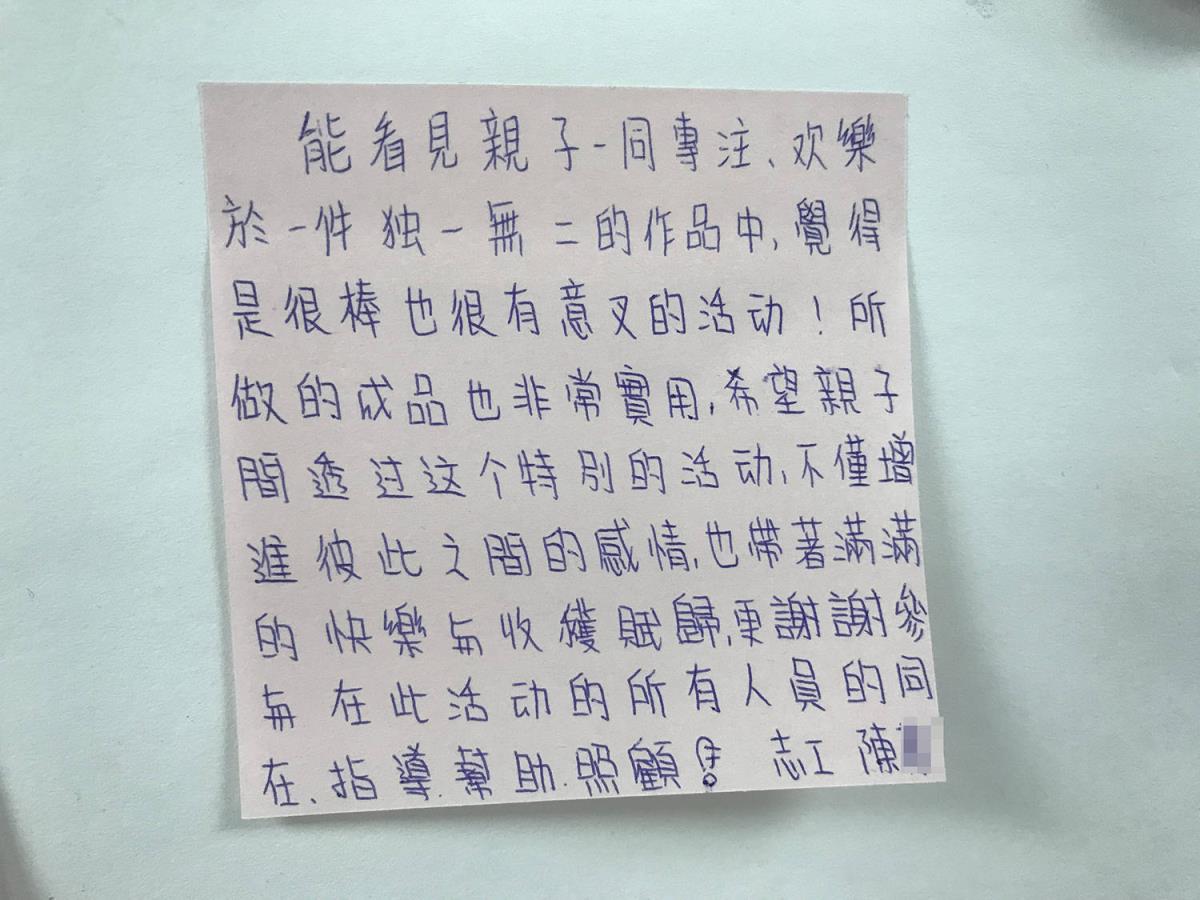 能看見親子一同專注、欢樂
於一件独一無二的作品中,覺得
是很棒也很有意义的活动!所
做的成品也非常實用,希望親子
間透过这个特别的活动、不僅增
進彼此之間的感情,也帶著滿滿
的快樂与收獲賦歸,更謝謝參
与在此活动的所有人員的同
在、指導、幫助、照顧! 志工 陳